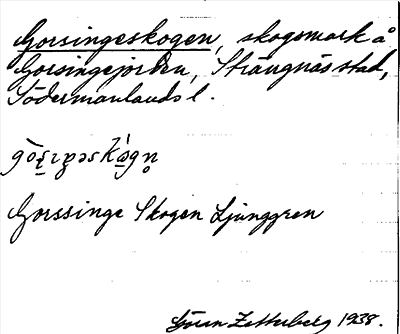 Gorsingeskogen, skogsmark å
Gorsingejorden, Strängnäs stad,
Södermanlands l.
Gorssinge Skogen Ljunggren
Göran Zetterberg 1938.